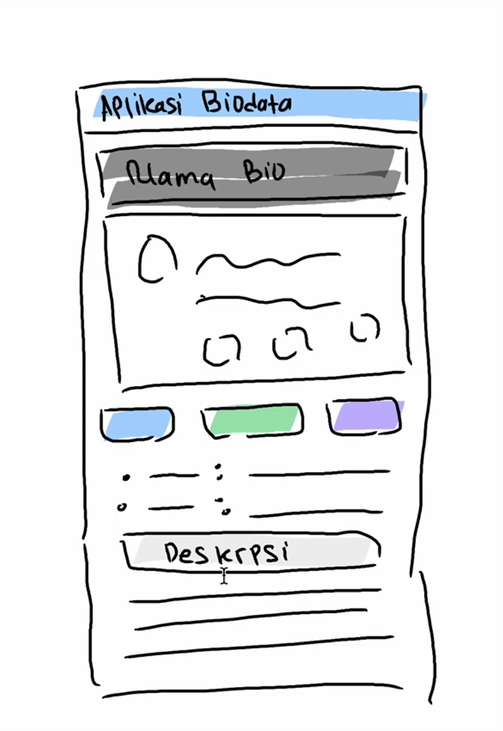 Aplikasi Biodata
Nama Bio
Deskrpsi